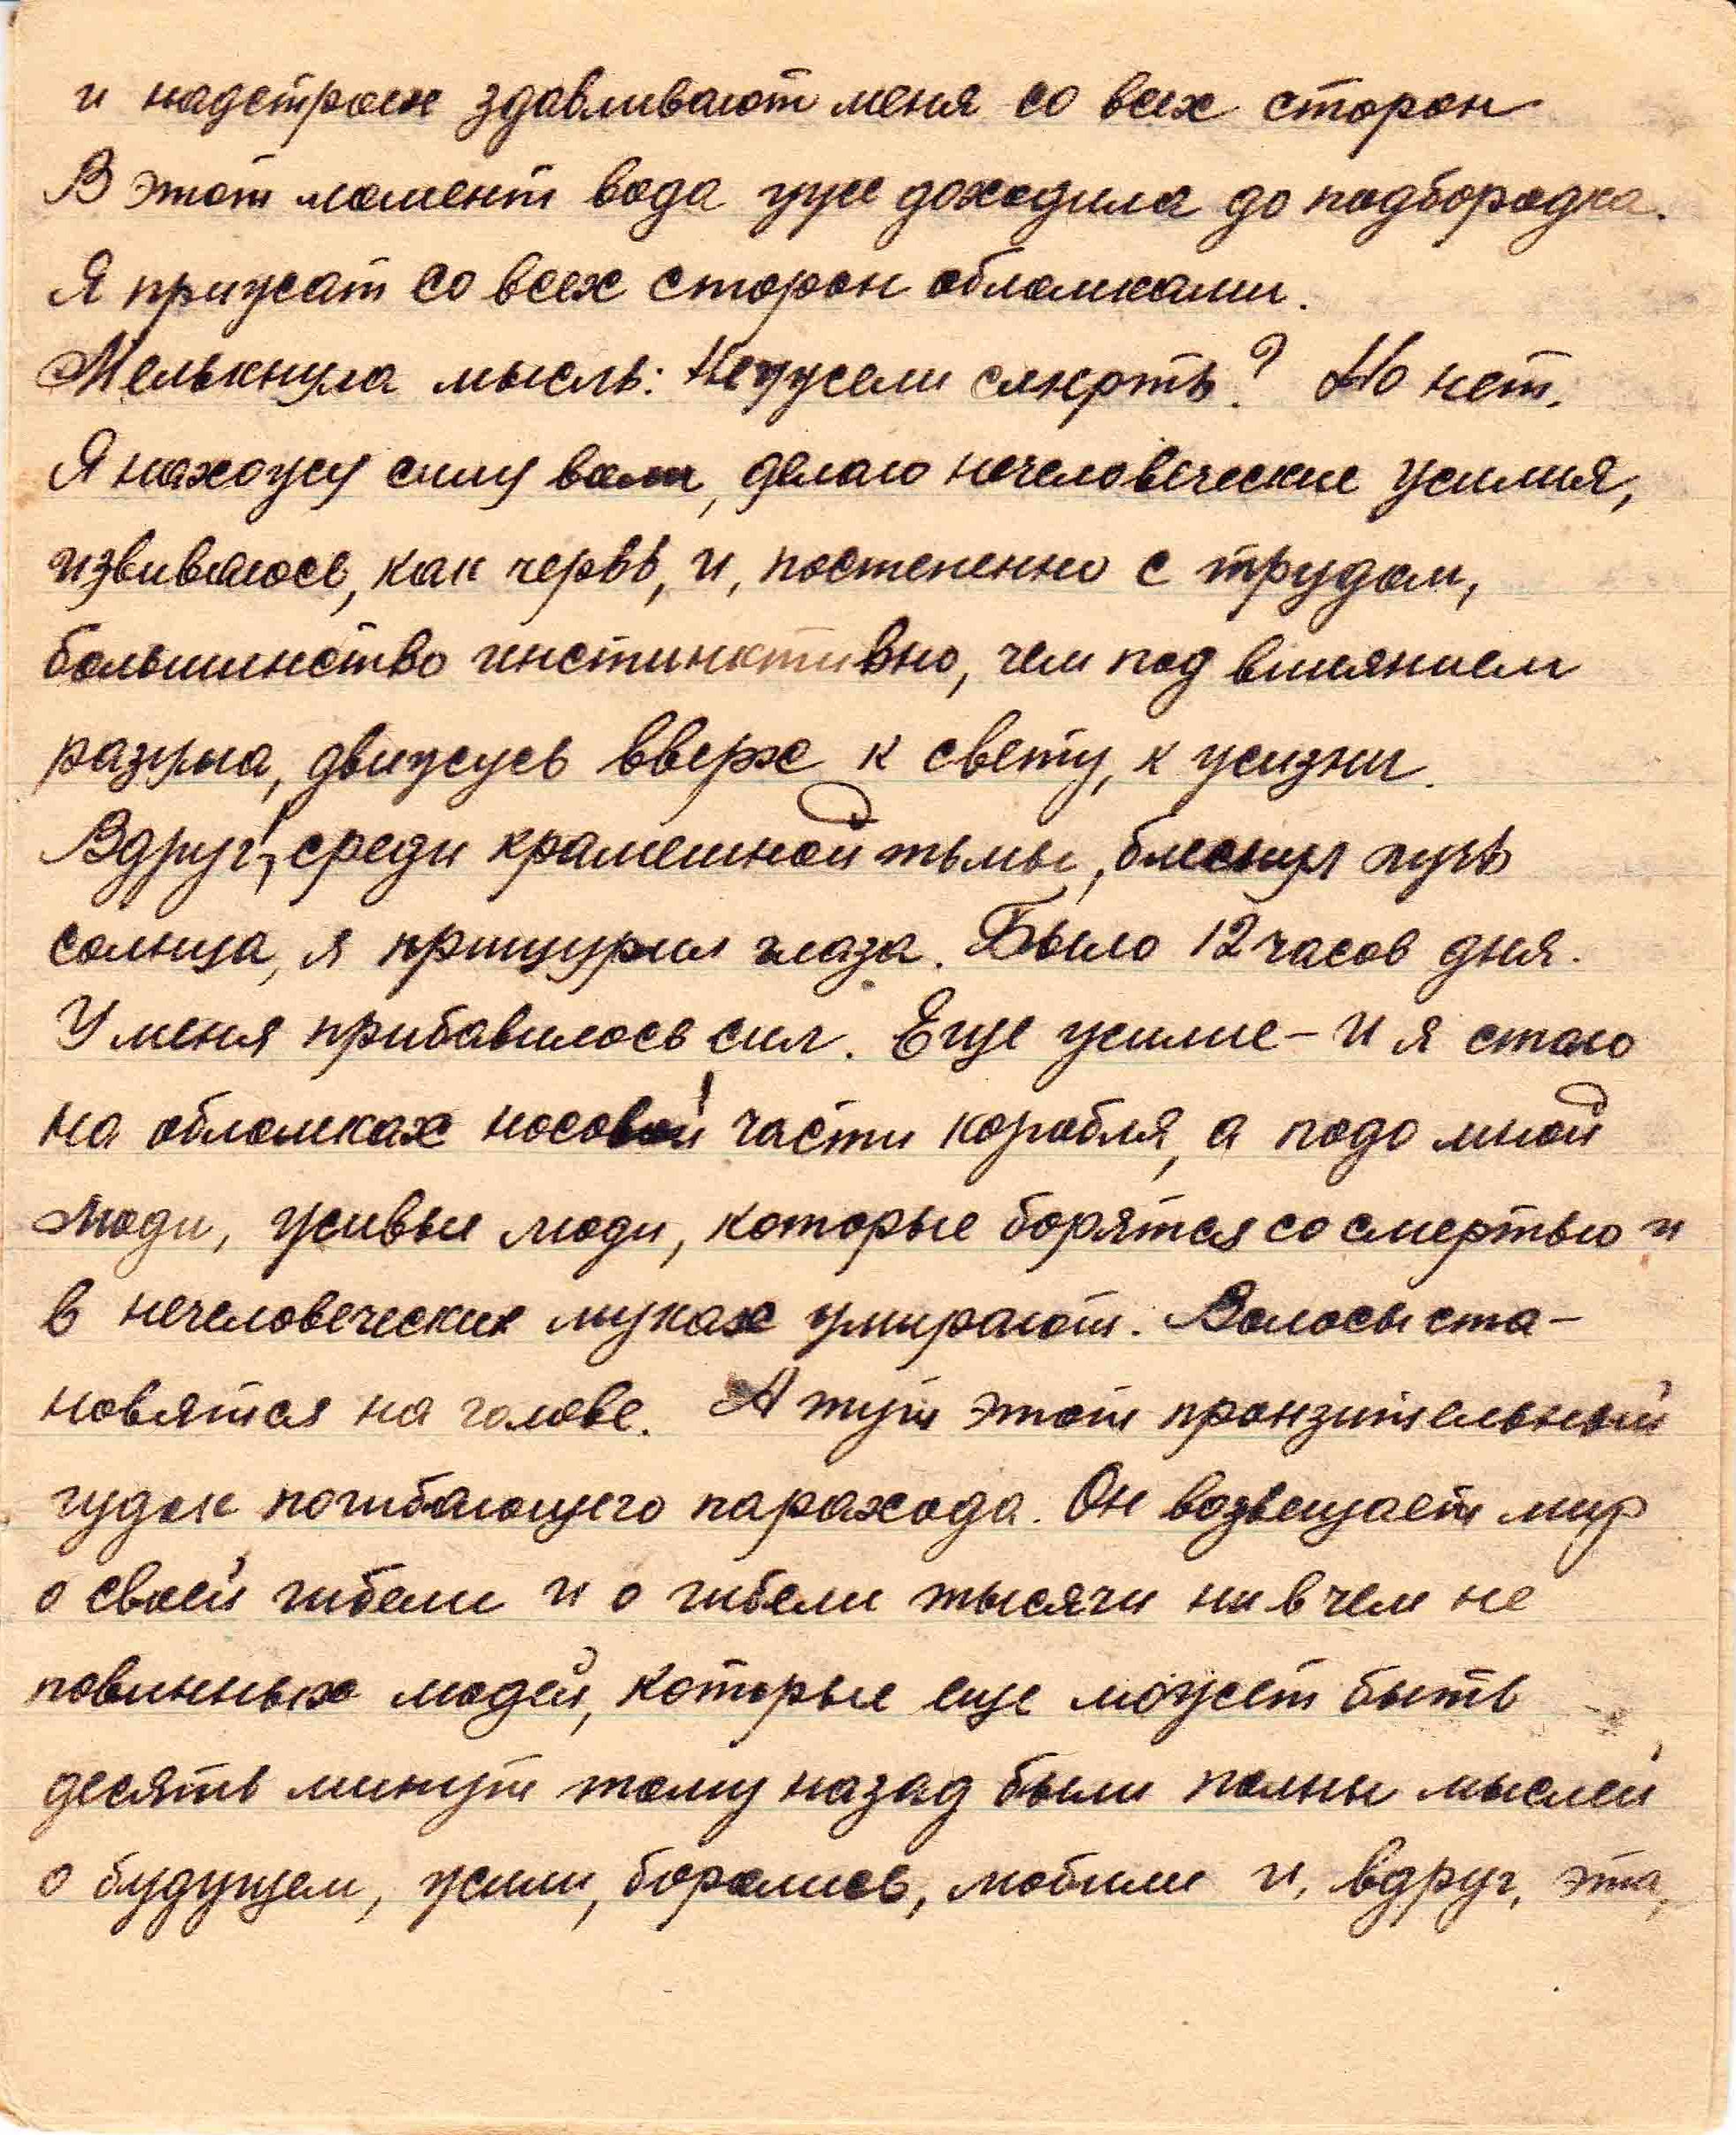 и надстроек здавливают меня со всех сторон
В этот момент вода уже доходила до подбородка.
Я прижат со всех сторон обломками.
Мелькнула мысль: Неужели смерть? Но нет.
Я нахожу силу воли, делаю нечеловеческие усилия,
извиваюсь, как червь, и, постепенно с трудом,
большинство инстинктивно, чем под влиянием
разума, движусь вверх к свету, к жизни.
Вдруг, среди крамешной тьмы, блеснул лучь
солнца, я прищурил глаза. Было 12 часов дня.
У меня прибавилось сил. Еще усилие – и я стаю
на обломках носовой части корабля, а подо мной
люди, живые люди, которые борятся со смертью и
в нечеловеческих муках умирают. Волосы ста-
новятся на голове. А тут этот пронзительный
гудок погибающего парахода. Он возвещает мир
о своей гибели и о гибели тысячи ни в чем не
повинных людей, которые еще может быть
десять минут тому назад были полны мыслей
о будущем, жили, боролись, любили и, вдруг, эта,